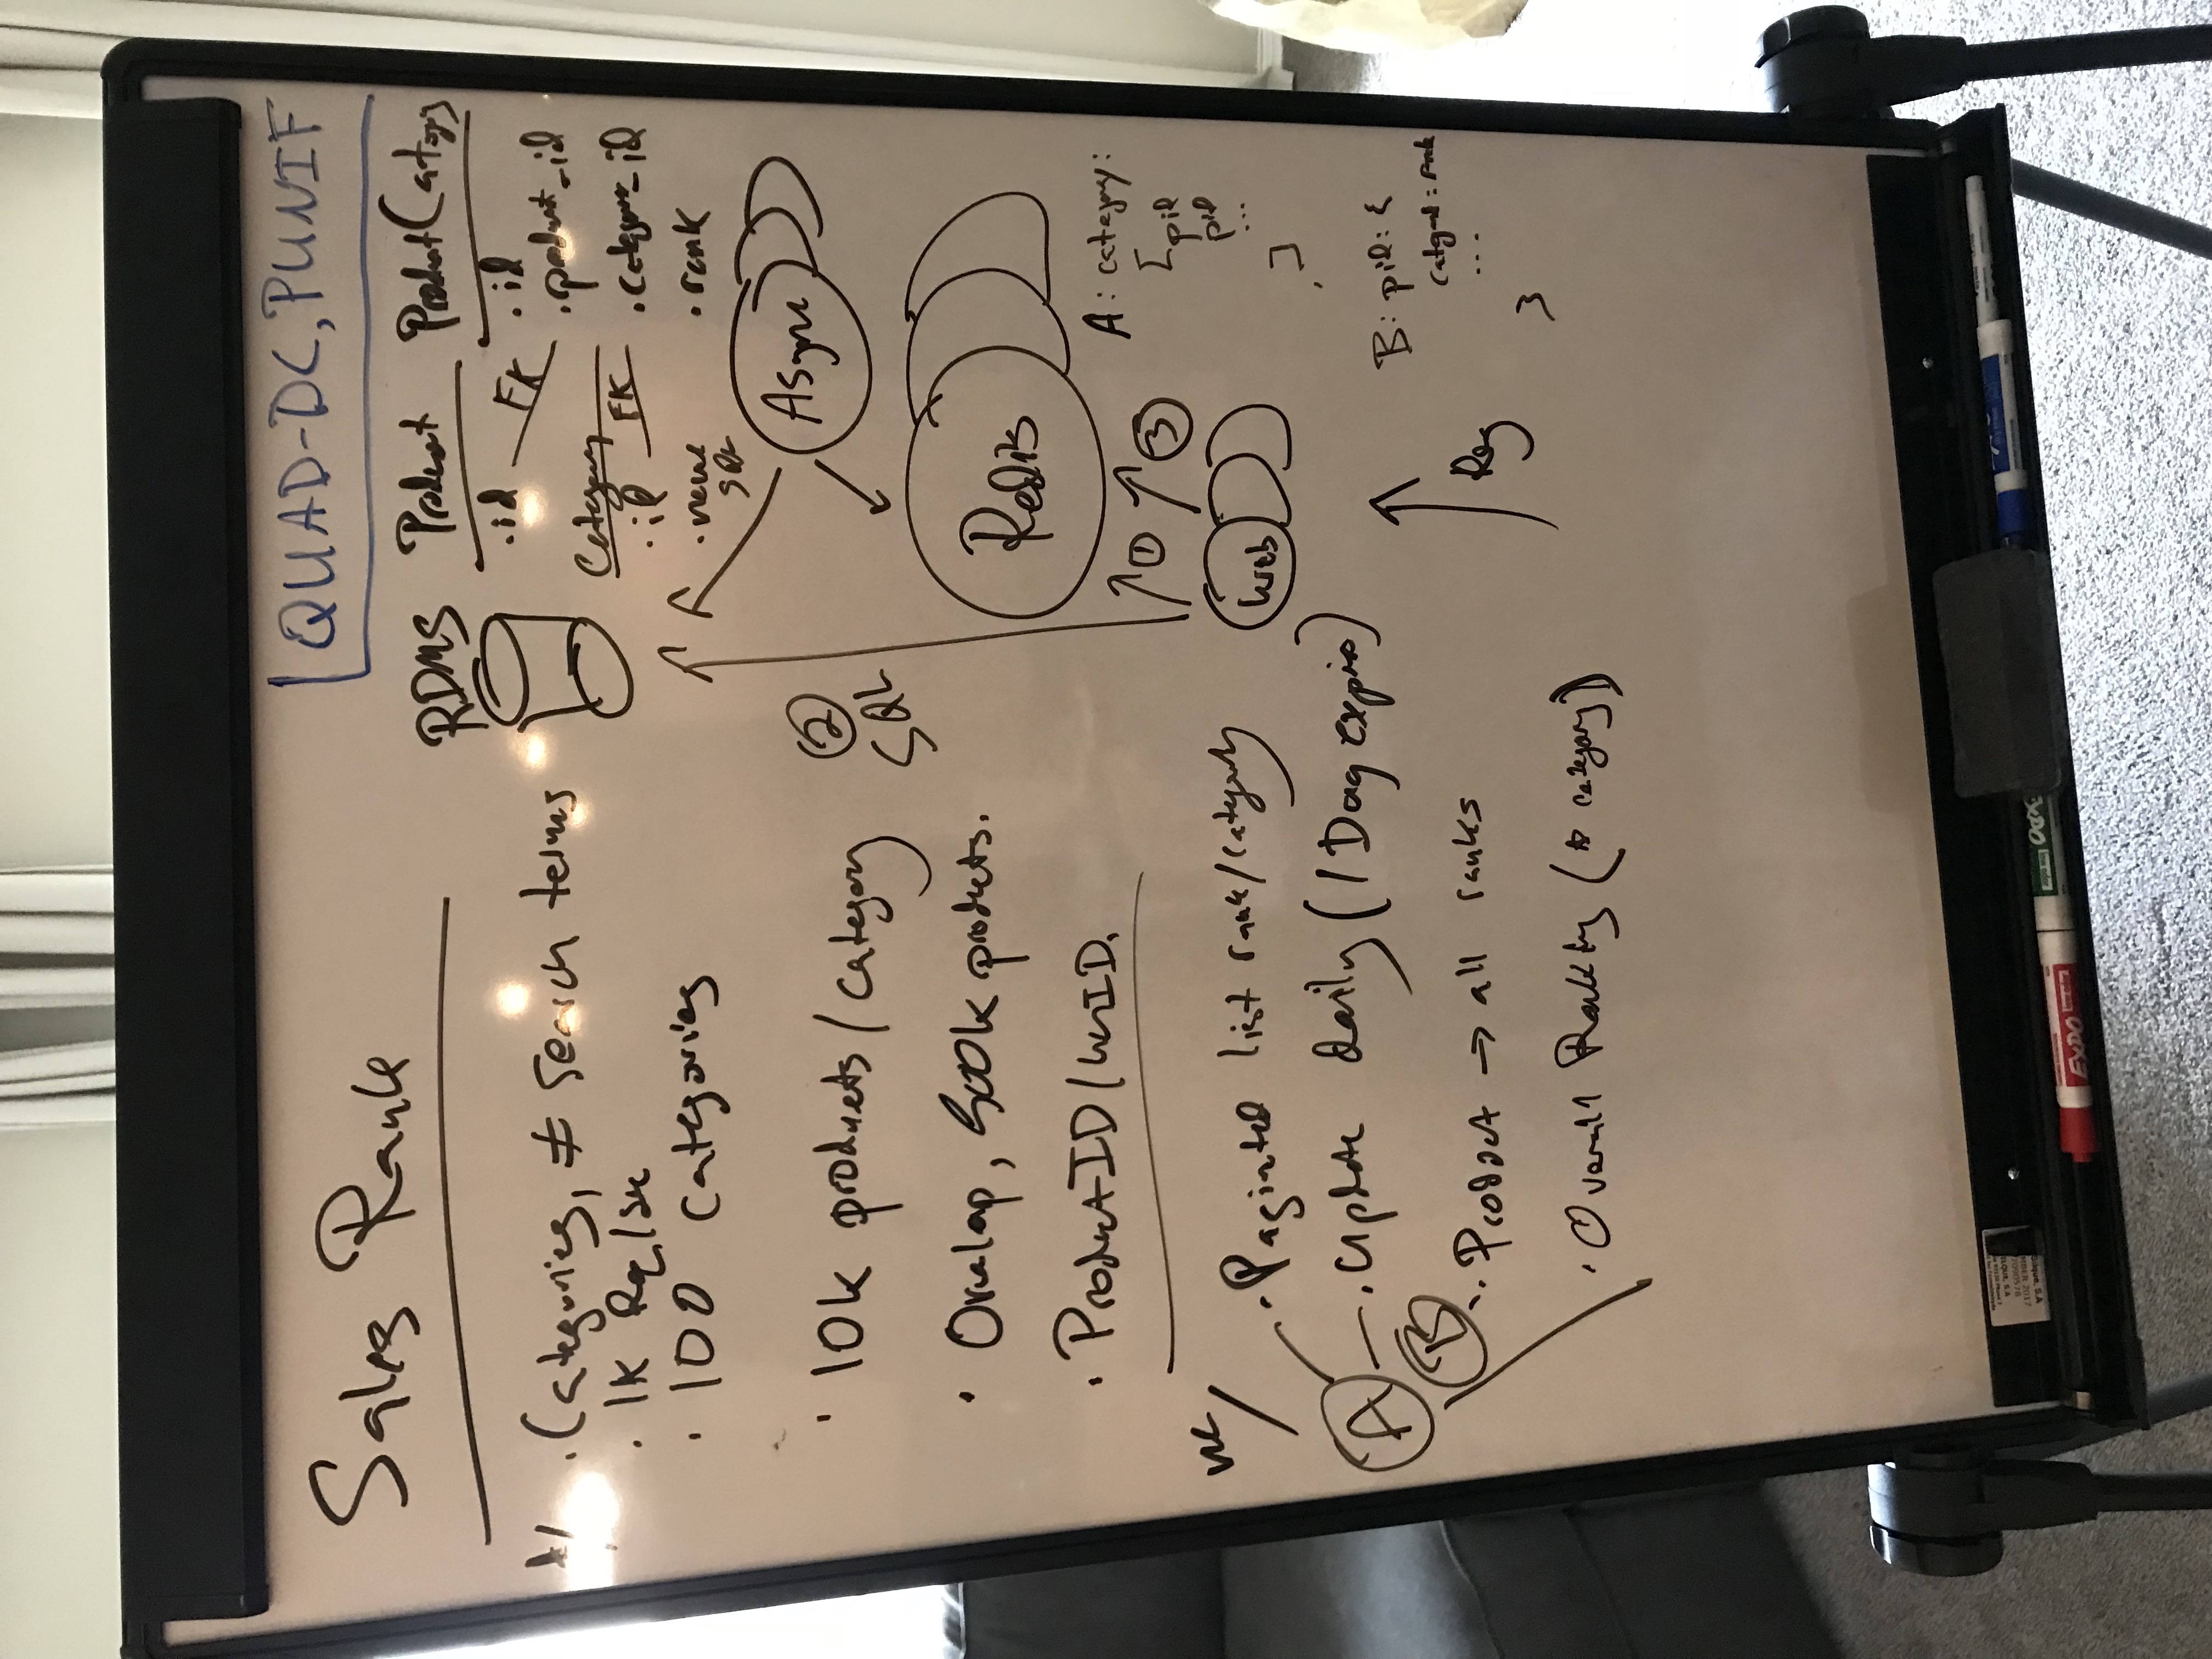 QUAD-DC, PUNIF
Sales Rank
A/
. Categories, ≠ Search terms
. 1K Req/sec
. 100 categories
. 10k products/category
. Overlap, 500k products.
. ProductID/UserID.
UC/
. Paginated list rank/category
A
. Update daily (1 Day expire)
B
. Product → all ranks
. Overall Ranking (A category)
RDMS
Product
. id
FK
Category
. id
FK
. name
ProductCategory
. id
. product_id
. category_id
. rank
SQL
Async
② SQL
Redis
① ③
Web
Req
A: category:
[pid
pid
...
],
B: pid: {
category: rank
...
}
EXPO
EXPO